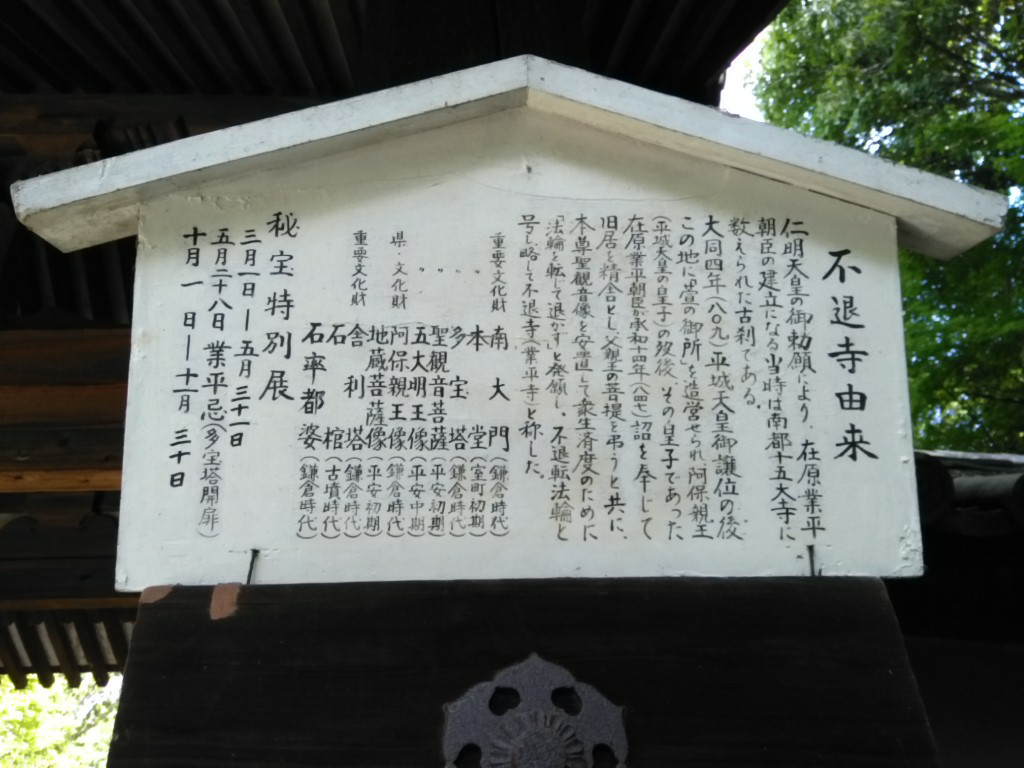 不退寺由来
仁明天皇の御勅願により、在原業平
朝臣の建立になる当時は南都十五大寺に
数えられた古刹である。
大同四年(八〇九)平城天皇御譲位の後
この地に「萱の御所」を造営せられ阿保親王
(平城天皇の皇子)の歿後、その皇子であった
在原業平朝臣が承和十四年(八四七)詔を奉じて
旧居を精舎とし、父親王の菩提を弔うと共に、
本尊聖観音像を安置して衆生済度のために
「法輪を転じて退かず」と発願し、不退転法輪と
号し略して不退寺(業平寺)と称した。
重要文化財 南大門(鎌倉時代)
〃 本堂(室町初期)
〃 多宝塔(鎌倉時代)
〃 聖観音菩薩(平安初期)
〃 五大明王像(平安中期)
県・文化財 阿保親王像(鎌倉時代)
地蔵菩薩像(平安初期)
重要文化財 舎利塔(鎌倉時代)
石棺(古墳時代)
石率都婆(鎌倉時代)
秘宝特別展
三月一日―五月三十一日
五月二十八日 業平忌(多宝塔開扉)
十月一日―十一月三十日